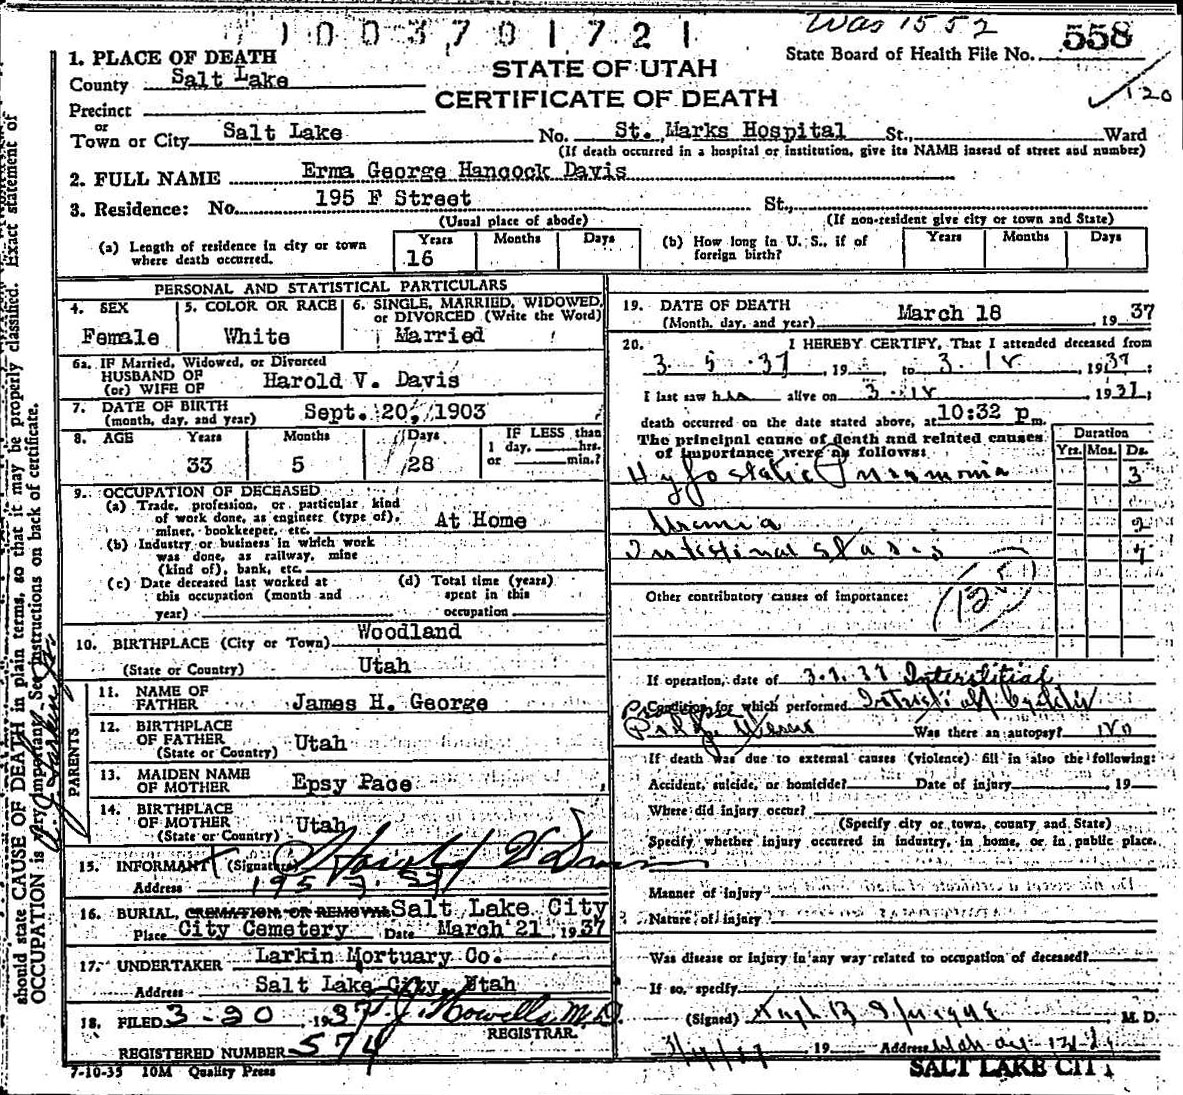 1003701721
Was 1552
State Board of Health File No. 558
120
1. PLACE OF DEATH
County Salt Lake
STATE OF UTAH
CERTIFICATE OF DEATH
Precinct
or
Town or City Salt Lake No. St. Marks Hospital St., Ward
(If death occurred in a hospital or institution, give its NAME instead of street and number)
2. FULL NAME Erma George Hancock Davis
3. Residence: No. 195 F Street St.,
(Usual place of abode) (If non-resident give city or town and State)
(a) Length of residence in city or town where death occurred. Years 16 Months Days
(b) How long in U. S., if of foreign birth? Years Months Days
PERSONAL AND STATISTICAL PARTICULARS
4. SEX Female
5. COLOR OR RACE White
6. SINGLE, MARRIED, WIDOWED, or DIVORCED (Write the Word) Married
6a. IF Married, Widowed, or Divorced
HUSBAND OF
(or) WIFE OF Harold V. Davis
7. DATE OF BIRTH
(month, day, and year) Sept. 20, 1903
8. AGE Years 33 Months 5 Days 28
IF LESS than 1 day, hrs. or min.?
9. OCCUPATION OF DECEASED
(a) Trade, profession, or particular kind of work done, as engineer (type of), miner, bookkeeper, etc. At Home
(b) Industry or business in which work was done, as railway, mine (kind of), bank, etc.
(c) Date deceased last worked at this occupation (month and year)
(d) Total time (years) spent in this occupation
10. BIRTHPLACE (City or Town) Woodland
(State or Country) Utah
PARENTS
11. NAME OF FATHER James H. George
12. BIRTHPLACE OF FATHER
(State or Country) Utah
13. MAIDEN NAME OF MOTHER Epsy Pace
14. BIRTHPLACE OF MOTHER
(State or Country) Utah
15. INFORMANT (Signature) Harold V. Davis
Address 195 F. St
16. BURIAL, CREMATION, OR REMOVAL Salt Lake City
Place City Cemetery Date March 21, 1937
17. UNDERTAKER Larkin Mortuary Co.
Address Salt Lake City, Utah
18. FILED 3-20, 1937 Howells M.D.
REGISTRAR.
REGISTERED NUMBER 574
7-10-35 10M Quality Press
19. DATE OF DEATH
(Month, day, and year) March 18 1937
20. I HEREBY CERTIFY, That I attended deceased from
3 5 37, 19 to 3.18, 1937;
I last saw h alive on 3-18, 19
death occurred on the date stated above, at 10:32 p.m.
The principal cause of death and related causes of importance were as follows:
Duration
Yrs. Mos. Ds.
Hypostatic Pneumonia 3
Uremia 2
Intestinal stasis 7
Other contributory causes of importance:
If operation, date of 3.9.37 Interstitial
Condition for which performed Cystitis
Was there an autopsy? no
If death was due to external causes (violence) fill in also the following:
Accident, suicide, or homicide? Date of injury, 19
Where did injury occur?
(Specify city or town, county and State)
Specify whether injury occurred in industry, in home, or in public place.
Manner of injury
Nature of injury
Was disease or injury in any way related to occupation of deceased?
If so, specify
(Signed) M. D.
19 Address
SALT LAKE CITY
should state CAUSE OF DEATH in plain terms, so that it may be properly classified. Exact statement of
OCCUPATION is very important. See instructions on back of certificate.